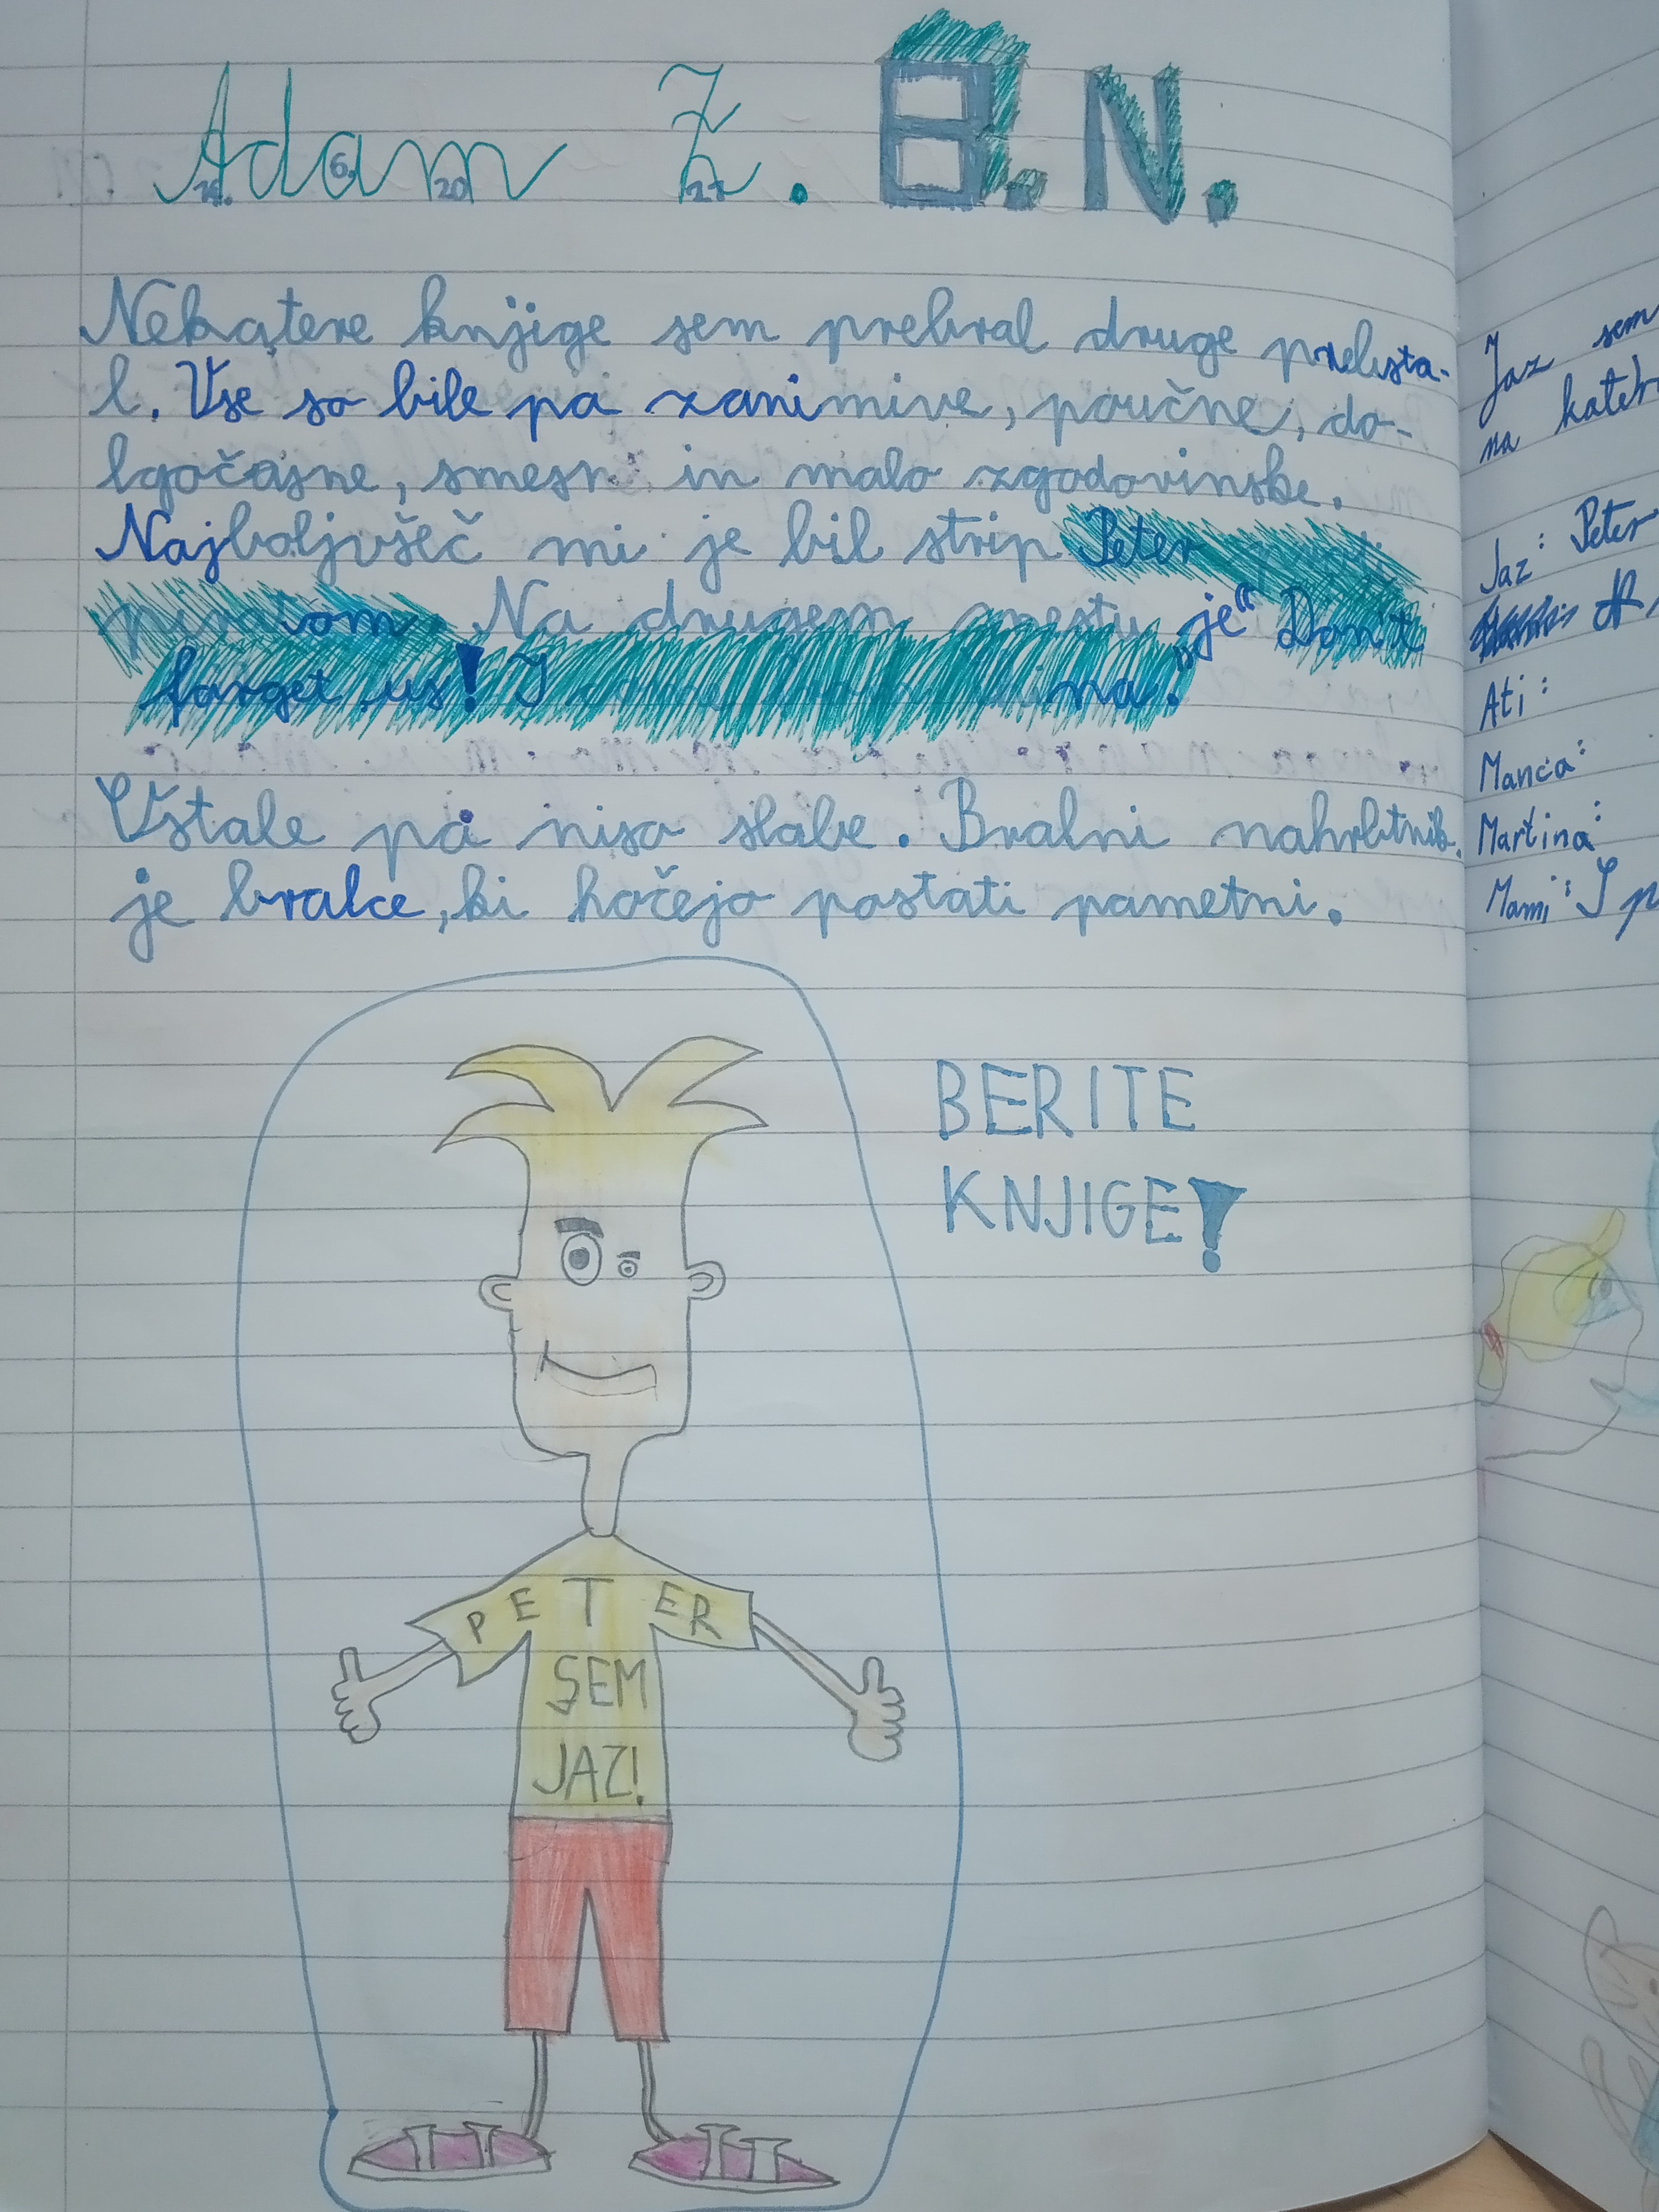 Adam Ž. B.N.
Nekatere knjige sem prebral druge prelista-
l. Vse so bile pa zanimive, poučne, do-
lgočasne, smešne in malo zgodovinske.
Najboljvšeč mi je bil strip Peter proti
piratom. Na drugem mestu „je“ Don't
forget us! I na.
Ustale pa niso slabe. Bralni nahrbtnik
je bralce, ki hočejo postati pametni.
BERITE
KNJIGE!
PETER
SEM
JAZ!
Jaz sem
na
Jaz: Peter
Ati:
Manca:
Martina:
Mami: